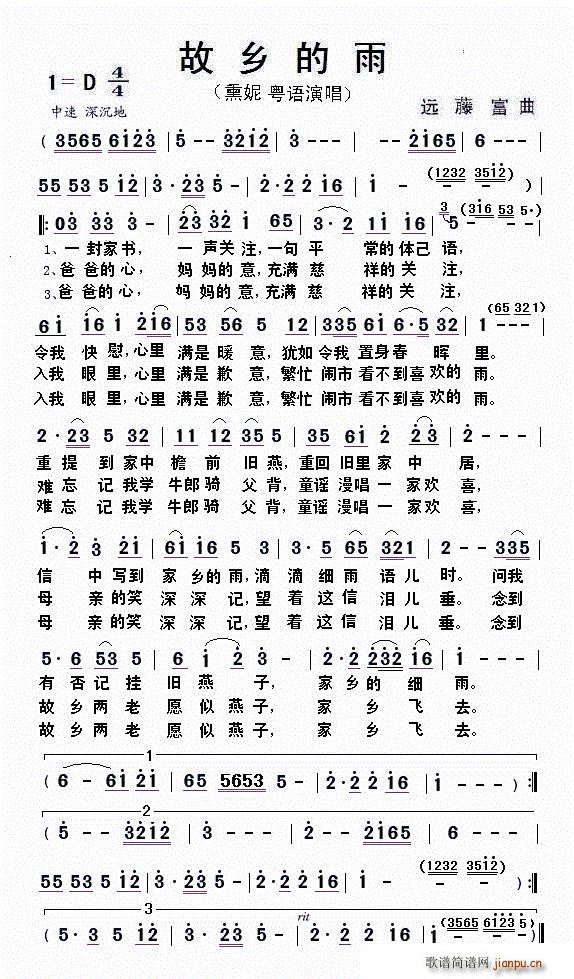 故乡的雨
1=D 4/4
(熏妮 粤语演唱)
中速 深沉地
远藤富曲
(3565 6123 | 5 - - 3212 | 3 - - - | 2165 6 - - |
55 53 5 12 | 3·23 5 - | 2·22 16 | 1 - (1232 3512)
‖: 03 33 3 - | 23 32 1 65 | 3·2 11 16 | 3 5 - (316 53 5·)
1、一封家书, 一声关注,一句平 常的体己语,
2、爸爸的心, 妈妈的意,充满慈 祥的关注,
3、爸爸的心, 妈妈的意,充满慈 祥的关注,
61 16 1 216 | 53 56 5 12 | 335 61 6·5 32 | 1 - - (65 321)
令我快慰,心里满是暖意,犹如令我置身春晖里。
入我眼里,心里满是歉意,繁忙闹市看不到喜欢的雨。
入我眼里,心里满是歉意,繁忙闹市看不到喜欢的雨。
2·23 5 32 | 11 12 35 5 | 35 61 2·23 |
重提到家中檐前旧燕,重回旧里家中居,
难忘记我学牛郎骑父背,童谣漫唱一家欢喜,
难忘记我学牛郎骑父背,童谣漫唱一家欢喜,
1·2 3 216 | 61 16 5 3 | 3·5 65 321 | 2 - - 335 |
信中写到家乡的雨,滴滴细雨语儿时。问我
母亲的笑深深记,望着这信泪儿垂。念到
母亲的笑深深记,望着这信泪儿垂。念到
5·6 53 5 | 2 6 1 2 - | 2·232 16 | 1 - - - |
有否记挂旧燕子,家乡的细雨。
故乡两老愿似燕子,家乡飞去。
故乡两老愿似燕子,家乡飞去。
1
(6 - 61 21 | 65 5653 5 - | 2·22 16 | 1 - - ) :‖
2
(5 - - 3212 | 3 - - - | 2·22165 | 6 - - - |
55 53 5 12 | 3·23 5 - | 2·22 16 | 1 - (1232 3512) :‖
3 rit
(5·3 3 - | 3·23 5 - | 2·22 16 | 1 - (3565 6123 5 - )‖
歌谱简谱网
jianpu.cn